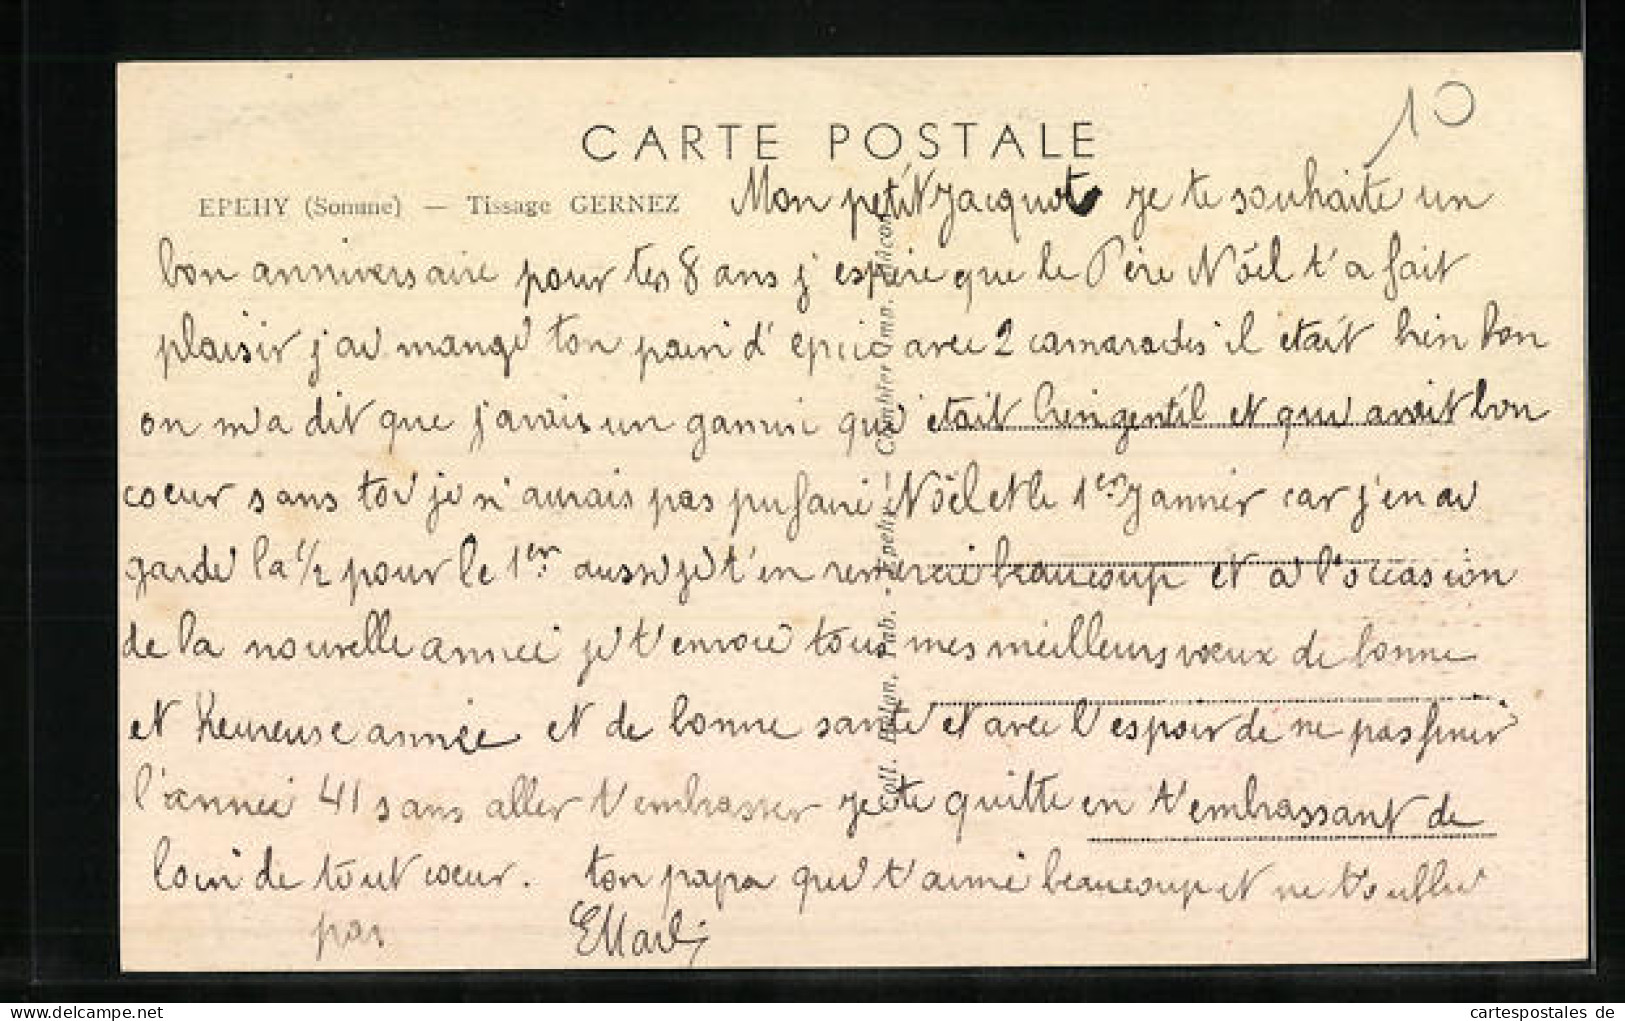 10
CARTE POSTALE
EPEHY (Somme) — Tissage GERNEZ
Mon petit Jacquot je te souhaite un
bon anniversaire pour tes 8 ans j'espère que le Père Nöel t'a fait
plaisir j'ai mangé ton pain d'epice avec 2 camarades il etait bien bon
on m'a dit que j'avais un gamin qui etait bien gentil et qui avait bon
coeur sans toi je n'aurais pas pu faire Nöel et le 1er Janvier car j'en ai
garde la 1/2 pour le 1er aussi je t'en remercie beaucoup et a l'occasion
de la nouvelle année je t'envoie tous mes meilleurs voeux de bonne
et heureuse année et de bonne santé et avec l'espoir de ne pas finir
l'année 41 sans aller t'embrasser je te quitte en t'embrassant de
loin de tout coeur. ton papa qui t'aime beaucoup et ne t'oublie
pas
Coll. Hulon, Tab. - Epehy. Combier imp. Macon
cartespostales de